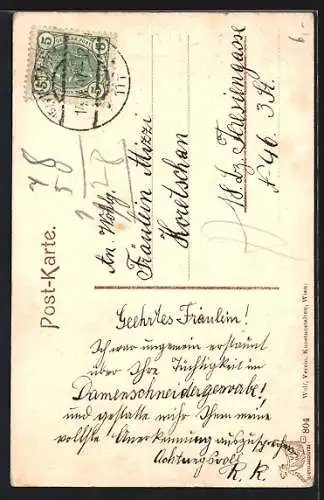 Post-Karte.
An Wohlg.
Fräulein Mizzi
Horetschan
Theresiengasse
№ 46. 3 St.
5
5
78
Geehrtes Fräulein!
Ich war ungemein erstaunt
über Ihre Tüchtigkeit im
Damenschneidergewerbe!
und gestatte mihr Ihnen meine
vollste Anerkennung auszusprechen
Achtungsvoll
K. K.
Wolf, Verein. Kunstanstalten, Wien.
804